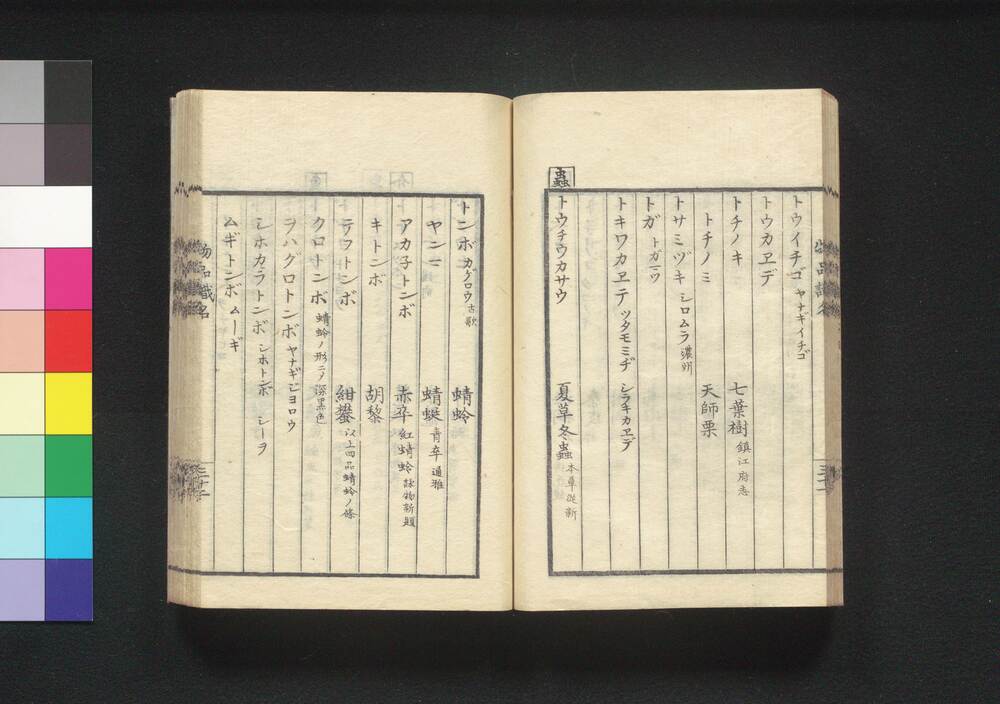 トウイチゴ ヤナギイチゴ
トウカヱデ
トチノキ 七葉樹 鎮江府志
トチノミ 天師栗
トサミヅキ シロムラ 濃州
トガ トガマツ
トキワカヱデ ツタモミヂ シラキカヱデ
蟲
トウチウカサウ 夏草冬蟲 本草従新
トンボ カゲロウ 古歌 蜻蛉
ヤンー 蜻蜓 青卒 通雅
アカ子トンボ 赤卒 紅蜻蛉 詠物新題
キトンボ 胡黎
テフトンボ 紺蠜 以上四品蜻蛉ノ條
クロトンボ 蜻蛉ノ形ニノ深黒色
ヲハグロトンボ ヤナギヂヨロウ
シホカラトンボ シホトンボ シーヲ
ムギトンボ ムーギ
物品識名
三十二